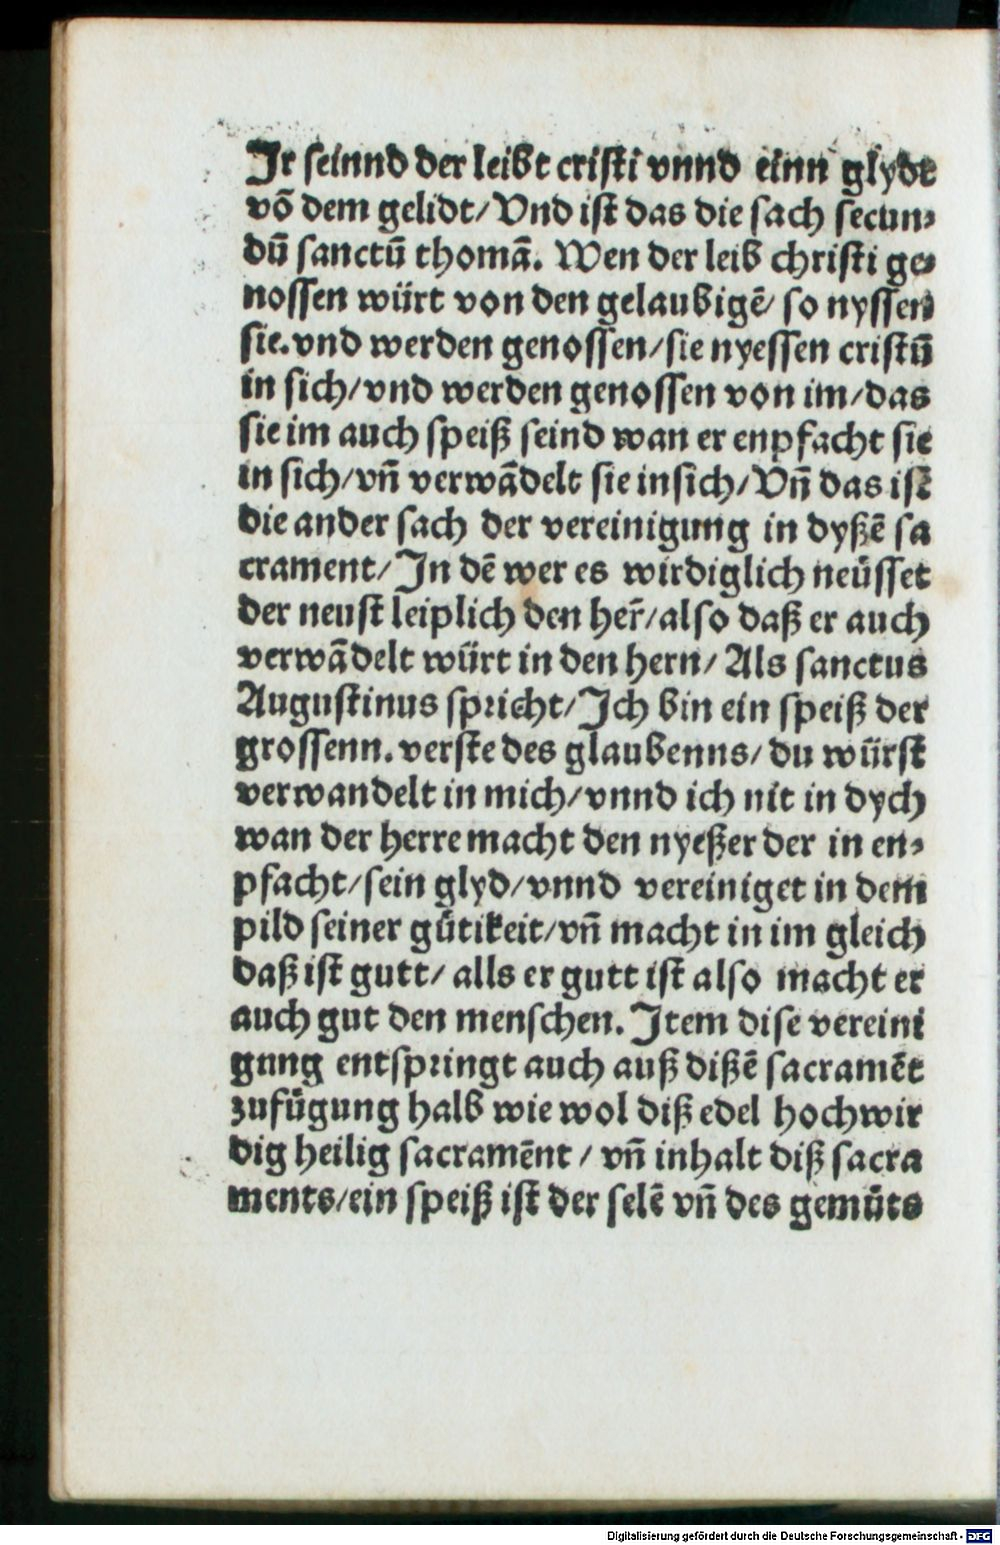 Jr seinnd der leibt cristi vnnd einn glydt
vō dem gelidt/ Vnd ist das die sach secun⸗
dū sanctū thomā. Wen der leib christi ge⸗
nossen würt von den gelaubigē/ so nyssen
sie.vnd werden genossen/sie nyessen cristū
in sich/vnd werden genossen von im/das
sie im auch speiß seind wan er enpfacht sie
in sich/vn̄ verwādelt sie insich/ Vn̄ das ist
die ander sach der vereinigung in dyßē sa
crament/ Jn dē wer es wirdiglich neüsset
der neust leiplich den her̄/also daß er auch
verwādelt würt in den hern/ Als sanctus
Augustinus spricht/ Jch bin ein speiß der
grossenn. verste des glaubenns/ du würst
verwandelt in mich/vnnd ich nit in dych
wan der herre macht den nyeßer der in en⸗
pfacht/sein glyd/vnnd vereiniget in dem
pild seiner gütikeit/vn̄ macht in im gleich
daß ist gutt/ alls er gutt ist also macht er
auch gut den menschen. Jtem dise vereini
gung entspringt auch auß dißē sacramēt
zufügung halb wie wol diß edel hochwir
dig heilig sacramēnt / vn̄ inhalt diß sacra
ments/ein speiß ist der selē vn̄ des gemüts
Digitalisierung gefördert durch die Deutsche Forschungsgemeinschaft - DFG